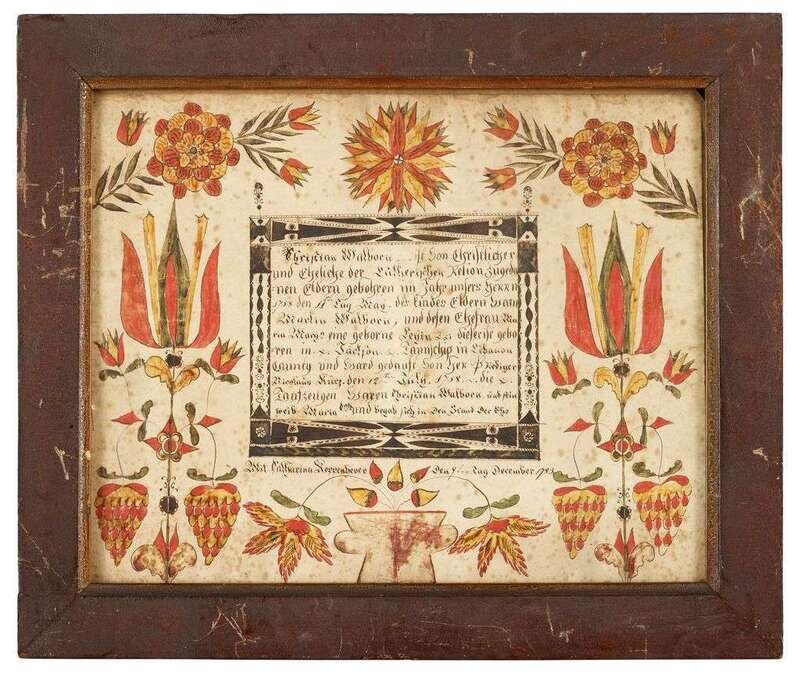 Christian Walborn ist Von Christlicher
und Ehelicke der Lutherischen Relion Zugeb
nen Eldern gebohren im Jahr unsers Herrn
1758 den Tag May. des kindes Eldern Wann
Martin Walborn, und desen Ehefrau Ma
ria Marg. eine geborne dieser ist gebo
ren in Jackson Taunschip in Libanon
Caunty und Ward gedauft Von Her Prediger
Nicolaus Kurz. den 12ten July. 1758. die
Taufzeugen Waren Christian Walborn und sein
weib Maria und begab sich in den Stand der Ehe
Mit Catharina den Tag December 1783